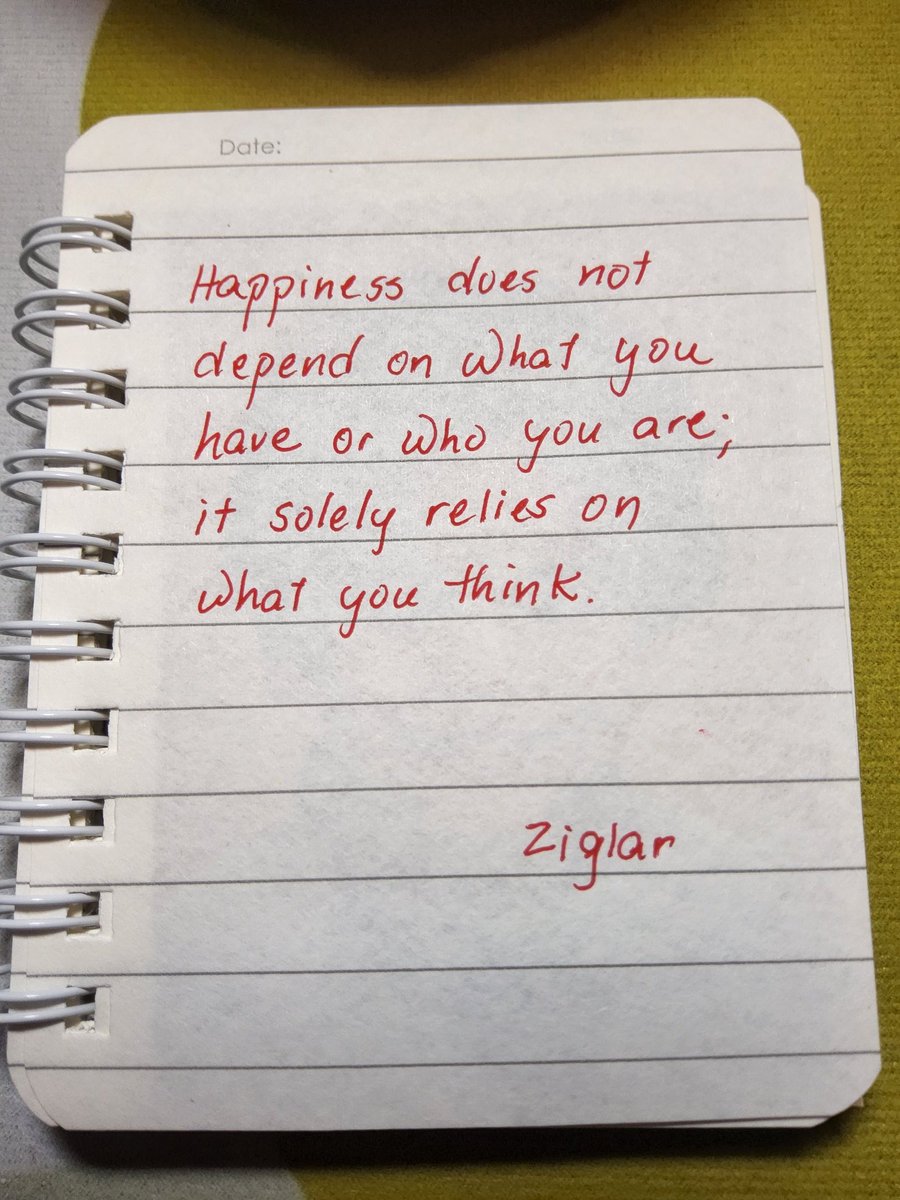 Date:
Happiness does not
depend on what you
have or who you are;
it solely relies on
what you think.
Ziglar